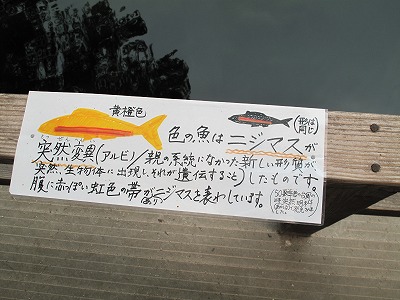 黄橙色
色の魚はニジマスが
突然変異(アルビノ/親の系統になかった新しい形質が
突然、生物体に出現し、それが遺伝すること)したものです。
腹に赤っぽい虹色の帯がありニジマスを表わしています。